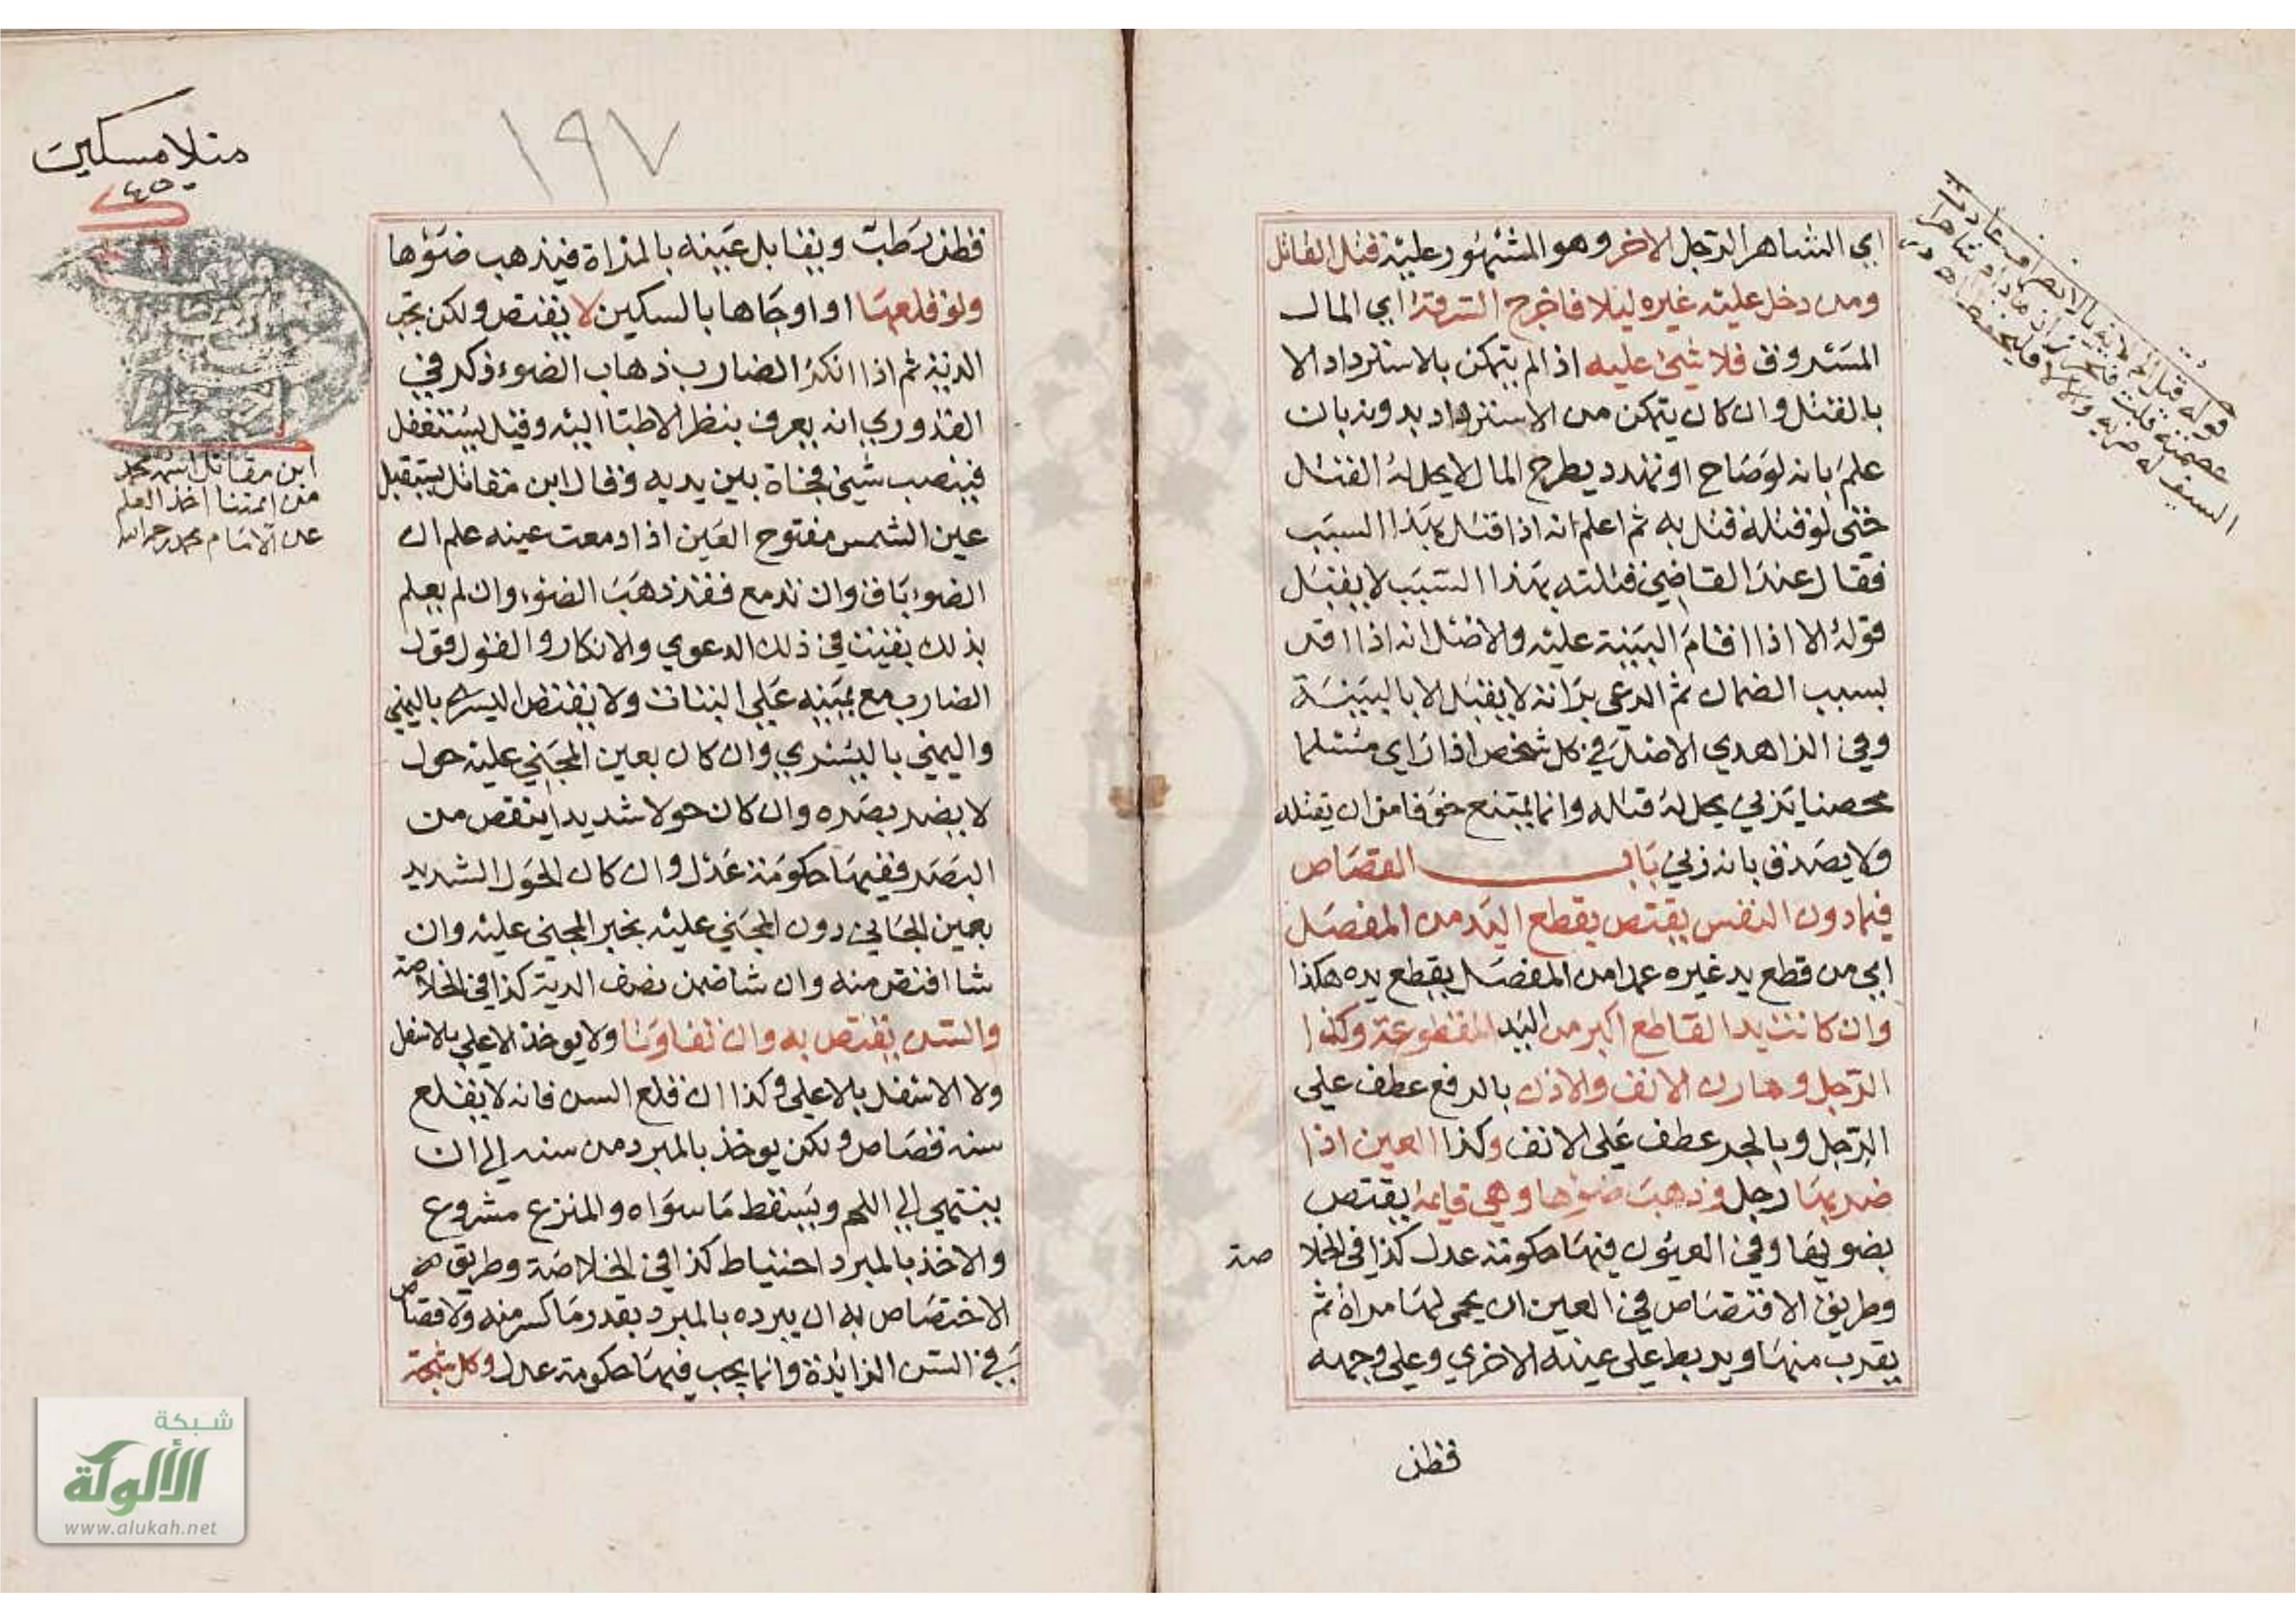 اي الشاهر الرجل الاخر وهو المشهور عليه قتل القاتل
ومن دخل عليه غيره ليلا فاخرج السرقة اي المال
المسروق فلا شيئ عليه اذا لم يتمكن بالاسترداد الا
بالقتل وان كان يتمكن من الاسترداد بدونه بان
علم بانه لو صاح او تهدد يطرح المال لا يحل له القتل
حتى لو قتله قتل به ثم اعلم انه اذا قتله بهذا السبب
فقال عند القاضي قتلته بهذا السبب لا يقبل
قوله الا اذا اقام البينة عليه والاصل انه اذا اقر
بسبب الضمان ثم ادعى براته لا يقبل الا بالبينة
وفي الزاهدي الاصل في كل شخص اذا راي مسلما
محصنا يزني يحل له قتله وانما يمتنع خوفا من ان يقتله
ولا يصدق بانه زني باب القصاص
فيما دون النفس يقتص بقطع اليد من المفصل
اي من قطع يد غيره عمدا من المفصل يقطع يده هكذا
وان كانت يد القاطع اكبر من اليد المقطوعة وكذا
الرجل ومارن الانف والاذن بالرفع عطف على
الرجل وبالجر عطف على الانف وكذا العين اذا
ضربها رجل وذهب ضوؤها وهي قايمة يقتص
بضوئها وفي العيون فيها حكومة عدل كذا في الخلا صة
وطريق الاقتصاص في العين ان يحمى لها مراة ثم
يقرب منها ويربط على عينه الاخري وعلى وجهه
قطن
قوله قتل
السيف له ضربه والا فليحفظ
١٩٧
منلا مسكين
قطن رطب ويقابل عينه بالمراة فيذهب ضوؤها
ولو قلعها او اوجاها بالسكين لا يقتص ولكن تجب
الدية ثم اذا انكر الضارب ذهاب الضوء ذكر في
القدوري انه يعرف بنظر الاطبا اليه وقيل يستغفل
فينصب شيئ فجاة بين يديه وقال ابن مقاتل يستقبل
عين الشمس مفتوح العين اذا دمعت عينه علم ان
الضوء باق وان لم تدمع فقد ذهب الضوء وان لم يعلم
بذلك بقيت في ذلك الدعوي والانكار والقول قول
الضارب مع يمينه على البتات ولا يقتص اليسرى باليمني
واليمني باليسري وان كان بعين المجني عليه حول
لا يضر بصره وان كان حولا شديدا ينقص من
البصر ففيها حكومة عدل وان كان الحول الشديد
بعين الجاني دون المجني عليه يخير المجني عليه وان
شا اقتص منه وان شا ضمن نصف الدية كذا في الخلاصة
والسن يقتص به وان تفاوتا ولا يوخذ الاعلي بالاسفل
ولا الاسفل بالاعلى وكذا ان قلع السن فانه لا يقلع
سنه قصاص ولكن يوخذ بالمبرد من سنه الى ان
ينتهي الى اللحم ويسقط ما سواه والمنزع مشروع
والاخذ بالمبرد احتياط كذا في الخلاصة وطريق
الاختصاص به ان يبرده بالمبرد بقدر ما كسر منه ولا قصاص
في السن الزائدة وانما يجب فيها حكومة عدل وكل شجة
ابن مقاتل اسمه محمد
من ايمتنا اخذ العلم
عن الامام محمد رحمه الله
شبكة
الألوكة
www.alukah.net